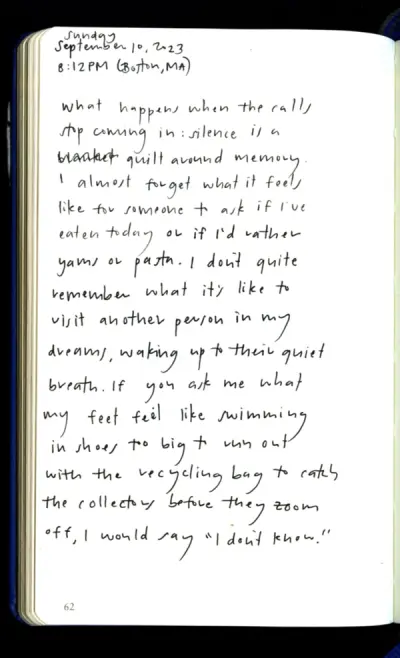 Sunday
September 10, 2023
8:12 PM (Boston, MA)
what happens when the calls
stop coming in: silence is a
blanket quilt around memory.
I almost forget what it feels
like for someone to ask if I've
eaten today or if I'd rather
yams or pasta. I don't quite
remember what it's like to
visit another person in my
dreams, waking up to their quiet
breath. If you ask me what
my feet feel like swimming
in shoes too big to run out
with the recycling bag to catch
the collectors before they zoom
off, I would say "I don't know."
62